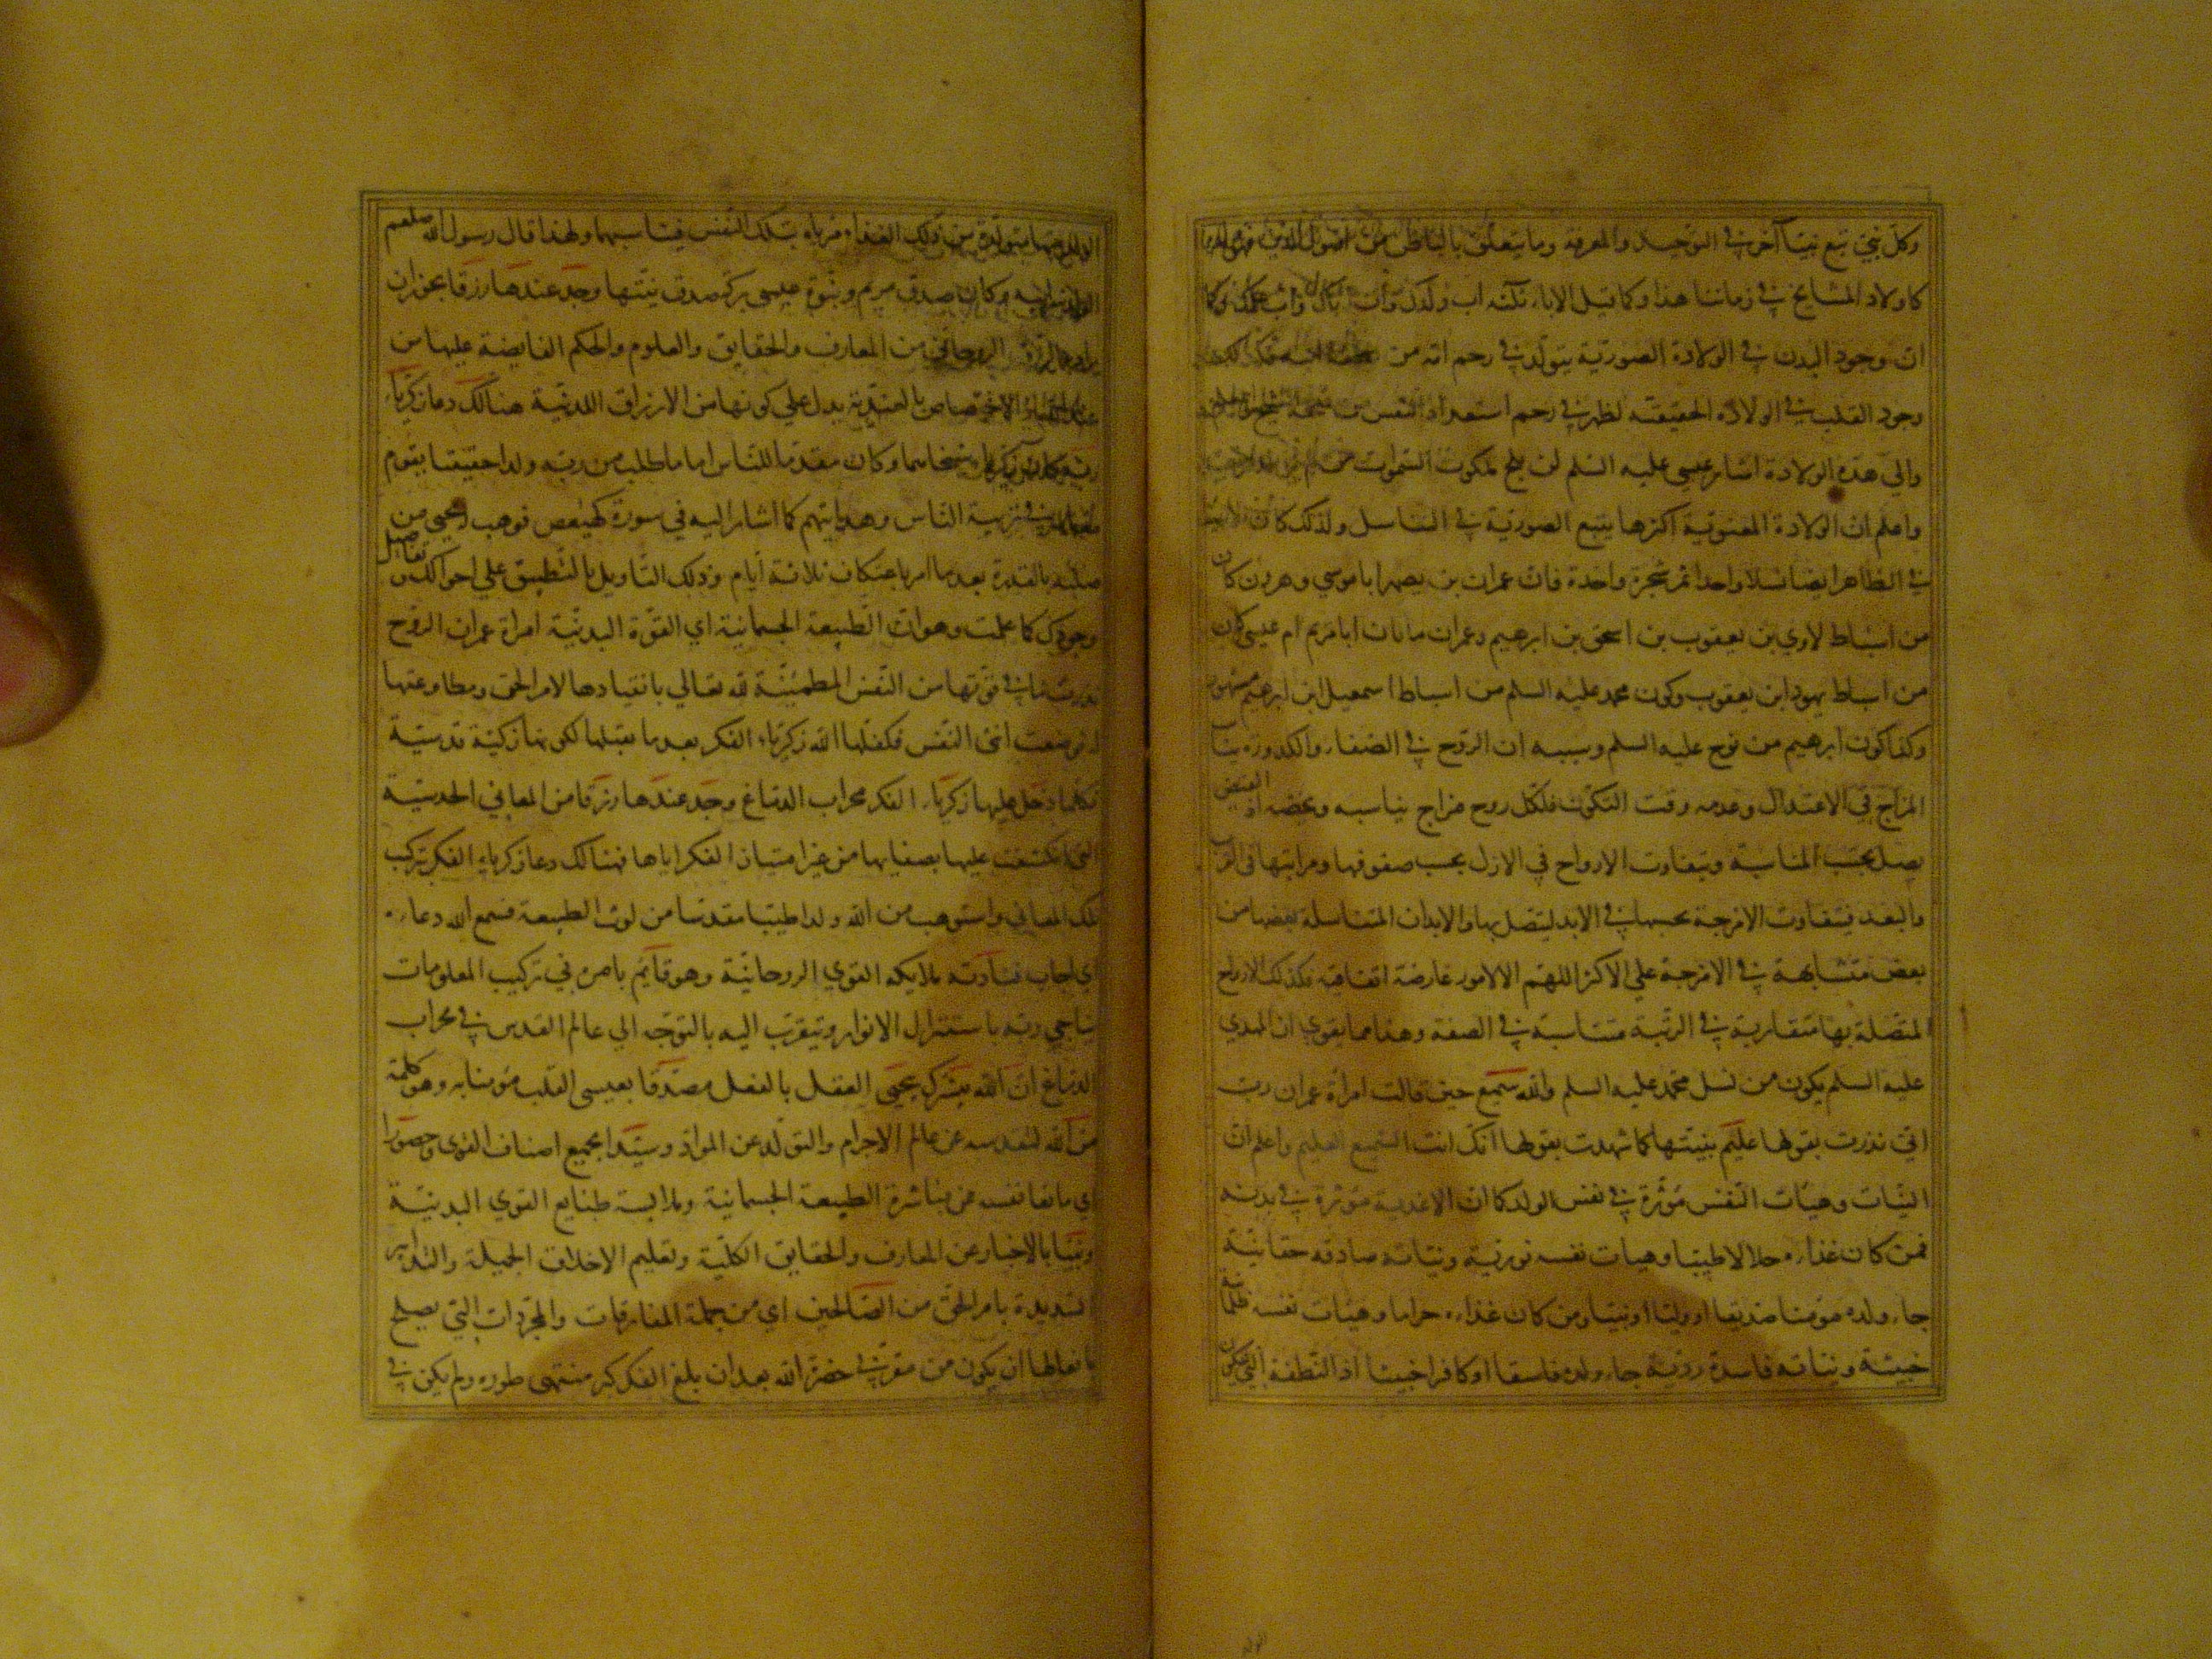 وكل نبي تبع نبيا آخر في التوحيد والمعرفة وما يتعلق بالباطن من اصول الدين فهو ولده
كاولاد المشايخ في زماننا هذا وكما قيل الاباء ثلثة اب ولدك واب رباك واب علمك فكما
ان وجود البدن في الولادة الصورية يتولد في رحم امه من
وجود القلب في الولادة الحقيقية لظهر في رحم استعداد النفس من
والي هذه الولادة اشار عيسى عليه السلم لن يلج ملكوت السموات من لم
واعلم ان الولادة المعنوية اكثرها يتبع الصورية في التناسل ولذلك كان
في الظاهر ايضا نسلا واحدا ثمر شجرة واحدة فان عمران بن يصهر ابا موسي وهرون كان
من اسباط لاوي بن يعقوب بن اسحق بن ابرهيم وعمران ماثان ابا مريم ام عيسى كان
من اسباط يهود ابن يعقوب وكون محمد عليه السلم من اسباط اسمعيل ابن ابرهيم مشهور
وكذا كون ابرهيم من نوح عليه السلم وسببه ان الروح في الصفاء والكدورة يناسب
المزاج في الاعتدال وعدمه وقت التكون فلكل روح مزاج يناسبه ويخصه اذ الفيض
يصل بحسب المناسبة وتتفاوت الارواح في الازل بحسب صفوفها ومراتبها في القرب
والبعد فتتفاوت الامزجة بحسبها في الابد ليتصل بها والابدان المتناسلة بعضها من
بعض متشابهة في الامزجة علي الاكثر اللهم الا لامور عارضة اتفاقية فكذلك الارواح
المتصلة بها متقاربة في الرتبة متناسبة في الصفة وهذا مما يقوي ان المهدي
عليه السلم يكون من نسل محمد عليه السلم والله سميع حين قالت امراة عمران رب
اني نذرت بقولها عليم بنيتها كما شهدت بقولها انك انت السميع العليم واعلم ان
النيات وهيات النفس مؤثرة في نفس الولد كما ان الاغذية مؤثرة في بدنه
فمن كان غذاءه حلالا طيبا وهيات نفسه نورية ونياته صادقة حقانية
جاء ولده مؤمنا صديقا او وليا او نبيا ومن كان غذاءه حراما وهيات نفسه ظلمانية
خبيثة ونياته فاسدة ردية جاء ولده فاسقا او كافرا خبيثا اذ النطفة التي يتكون
الولد منها متولدة من ذلك الغذاء مرباة بتلك النفس فيناسبهما ولهذا قال رسول الله صلعم
الولد سر ابيه وكان صدق مريم ونبوة عيسى بركة صدق نيتها وجد عندها رزقا يجوز ان
يراد به الرزق الروحاني من المعارف والحقايق والعلوم والحكم الفايضة عليها من
عند الله اذ الاختصاص بالعندية يدل علي كونها من الارزاق اللدنية هنالك دعا زكريا
ربه كان زكريا شيخا وكان مقدما للناس اماما طلب من ربه ولدا حقيقيا يقوم
مقامه في تربية الناس وهدايتهم كما اشار اليه في سورة كهيعص فوهب له يحيى من
صلبه بالقدرة بعد ما امر باعتكاف ثلاثة أيام وذلك التاويل بالتطبيق علي احوالك وتفاصيل
وجودك كما علمت وهو ان الطبيعة الجسمانية اي القوة البدنية امراة عمران الروح
نذرت ما في قوتها من النفس المطمئنة لله تعالي بانقيادها لامر الحق ومطاوعتها
له فوضعت انثى النفس فكفلها الله زكرياء الفكر بعد ما تقبلها لكونها زكية قدسية
فكلما دخل عليها زكرياء الفكر محراب الدماغ وجد عندها رزقا من المعاني الحدسية
التي انكشفت عليها بصفائها من غير امتياز الفكر اياها فهنالك دعا زكرياء الفكر بتركيب
تلك المعاني واستوهب من الله ولدا طيبا مقدسا من لوث الطبيعة فسمع الله دعاءه
اي اجاب فنادته ملايكه القوي الروحانية وهو قايم بامره في تركيب المعلومات
يناجي ربه باستنزال الانوار ويتقرب اليه بالتوجه الي عالم القدس في محراب
الدماغ ان الله يبشرك بيحيى العقل بالفعل مصدقا بعيسى القلب مؤمنا به وهو كلمة
من الله لتقدسه عن عالم الاجرام والتولد عن المواد وسيدا بجميع اصناف القوى وحصورا
اي مانعا نفسه عن مباشرة الطبيعة الجسمانية وملابسة طبايع القوي البدنية
ونبيا بالاخبار عن المعارف والحقايق الكلية وتعليم الاخلاق الجميلة والتدابير
السديدة بامر الحق من الصالحين اي من جملة المفارقات والمجردات التي يصلح
بافعالها ان يكون من مقربي حضرة الله بعد ان بلغ الفكر كبر منتهى طوره ولم يكن في